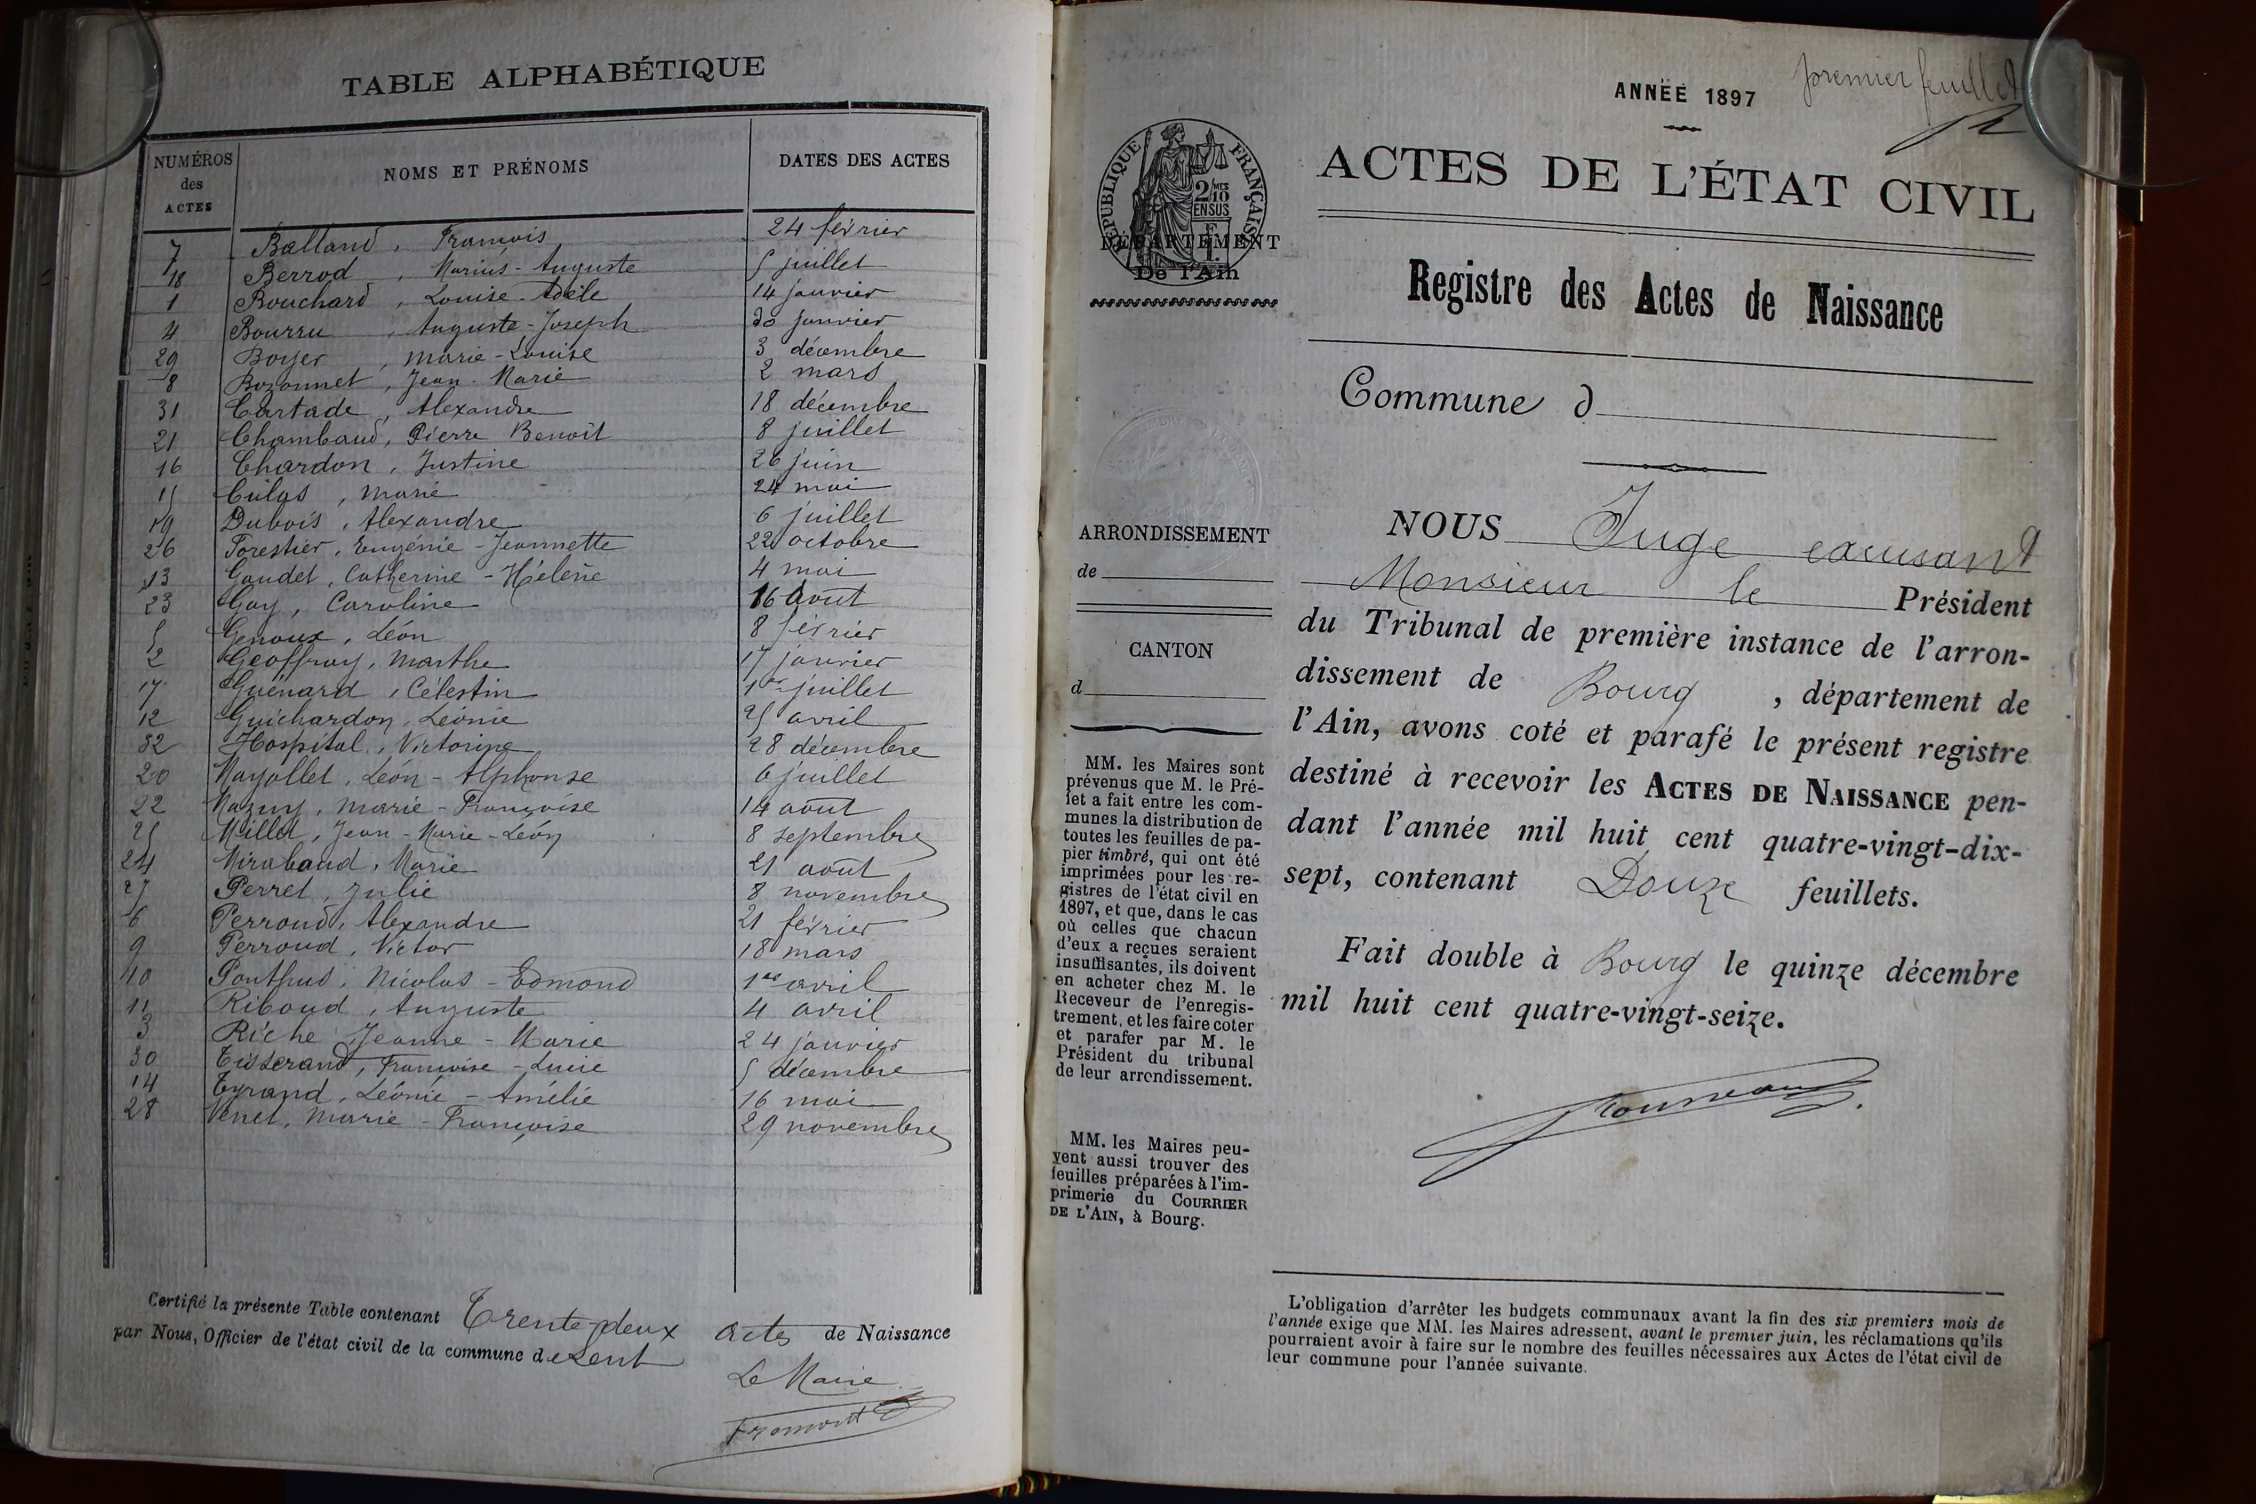 TABLE ALPHABÉTIQUE
NUMÉROS des ACTES NOMS ET PRÉNOMS DATES DES ACTES
7 Balland, François 24 février
18 Berrod, Marius-Auguste 5 juillet
1 Bouchard, Louise-Adèle 14 janvier
4 Bourru, Auguste-Joseph 30 janvier
29 Boyer, Marie-Louise 3 décembre
8 Bozonnet, Jean-Marie 2 mars
31 Cartade, Alexandre 18 décembre
21 Chambaud, Pierre Benoît 8 juillet
16 Chardon, Justine 26 juin
15 Cuilas, Marie 24 mai
19 Dubois, Alexandre 6 juillet
26 Forestier, Eugénie-Jeannette 22 octobre
13 Gaudet, Catherine-Hélène 4 mai
23 Gay, Caroline 16 août
5 Genoux, Léon 8 février
2 Geoffray, Marthe 17 janvier
17 Guénard, Célestin 1er juillet
12 Guichardon, Léonie 25 avril
32 Hospital, Victorine 28 décembre
20 Mayollet, Léon-Alphonse 6 juillet
22 Mazuy, Marie-Françoise 14 août
25 Millet, Jean-Marie-Léon 8 septembre
24 Miraband, Marie 21 août
27 Perret, Julie 8 novembre
6 Perroud, Alexandre 21 février
9 Perroud, Victor 18 mars
10 Ponthus, Nicolas-Edmond 1er avril
11 Riboud, Auguste 4 avril
3 Riche Jeanne-Marie 24 janvier
30 Tisserand, Françoise-Lucie 5 décembre
14 Tyrand, Léonie-Amélie 16 mai
28 Venet, Marie-Françoise 29 novembre
Certifié la présente Table contenant Trente-deux actes de Naissance
par Nous, Officier de l'état civil de la commune de Lent
Le Maire
Fromont
premier feuillet
ANNÉE 1897
RÉPUBLIQUE FRANÇAISE
2/10 EN SUS
DÉPARTEMENT
De l'Ain
ACTES DE L'ÉTAT CIVIL
Registre des Actes de Naissance
Commune d
ARRONDISSEMENT
de
CANTON
d
MM. les Maires sont
prévenus que M. le Pré-
fet a fait entre les com-
munes la distribution de
toutes les feuilles de pa-
pier timbré, qui ont été
imprimées pour les re-
gistres de l'état civil en
1897, et que, dans le cas
où celles que chacun
d'eux a reçues seraient
insuffisantes, ils doivent
en acheter chez M. le
Receveur de l'enregis-
trement, et les faire coter
et parafer par M. le
Président du tribunal
de leur arrondissement.
MM. les Maires peu-
vent aussi trouver des
feuilles préparées à l'im-
primerie du COURRIER
DE L'AIN, à Bourg.
NOUS Juge excusant
Monsieur le Président
du Tribunal de première instance de l'arron-
dissement de Bourg, département de
l'Ain, avons coté et parafé le présent registre
destiné à recevoir les ACTES DE NAISSANCE pen-
dant l'année mil huit cent quatre-vingt-dix-
sept, contenant Douze feuillets.
Fait double à Bourg le quinze décembre
mil huit cent quatre-vingt-seize.
L'obligation d'arrêter les budgets communaux avant la fin des six premiers mois de
l'année exige que MM. les Maires adressent, avant le premier juin, les réclamations qu'ils
pourraient avoir à faire sur le nombre des feuilles nécessaires aux Actes de l'état civil de
leur commune pour l'année suivante.